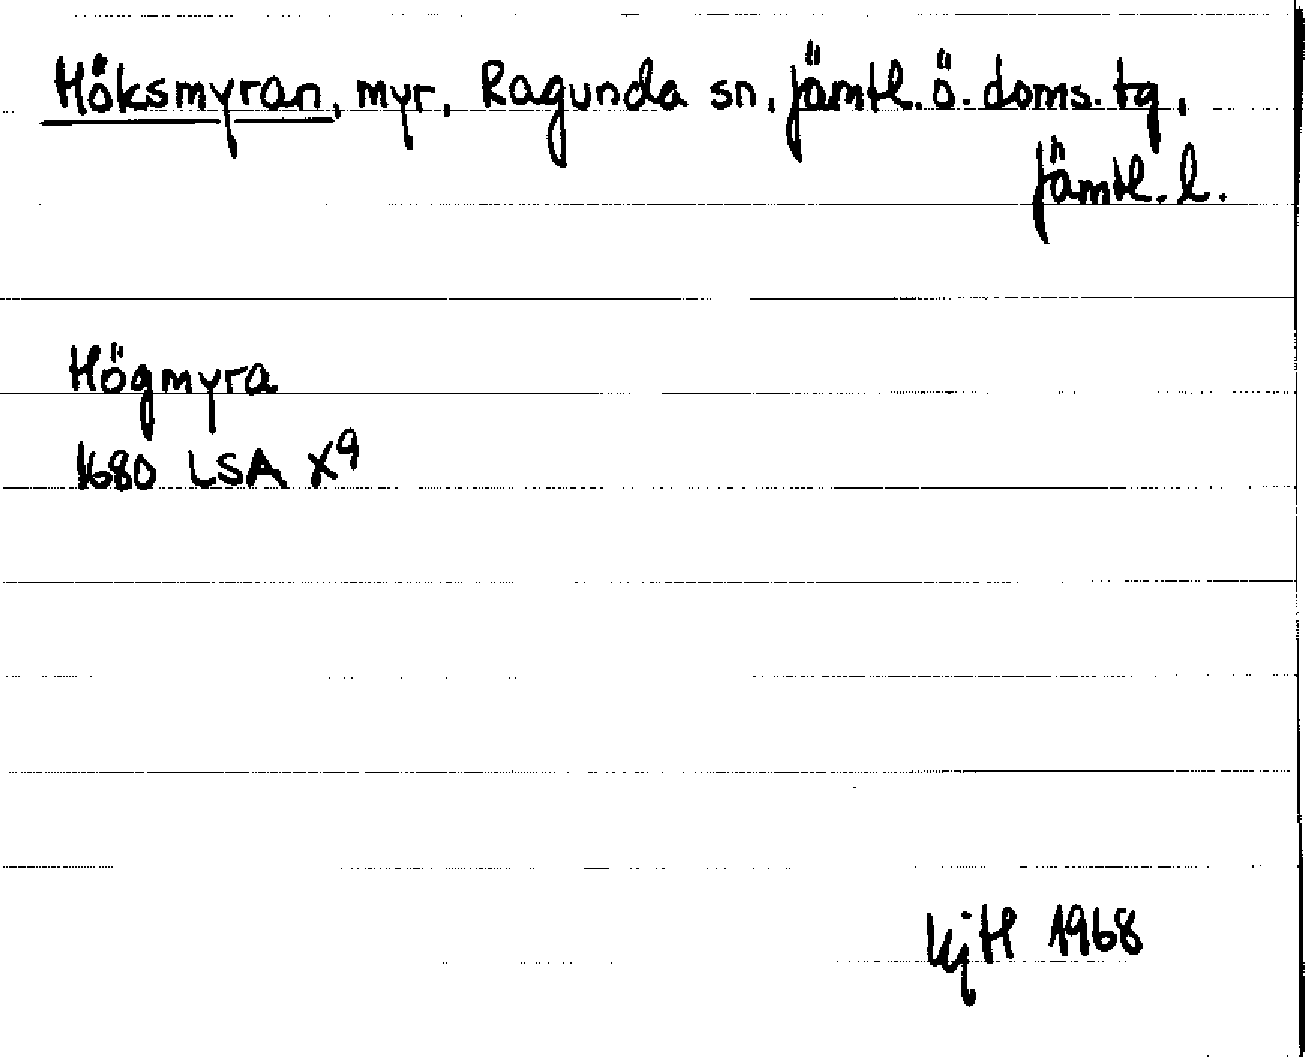 Höksmyran, myr, Ragunda sn, Jämtl. ö. doms. tg,
Jämtl. l.
Högmyra
1680 LSA X9
KjH 1968